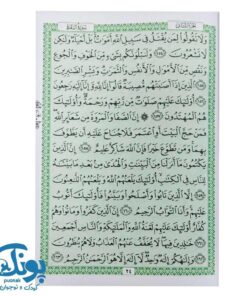 الجزء الثاني سورة البقرة
وَلَا تَقُولُوا۟ لِمَن يُقْتَلُ فِى سَبِيلِ ٱللَّهِ أَمْوَٰتٌۢ بَلْ أَحْيَآءٌ وَلَٰكِن
لَّا تَشْعُرُونَ ١٥٤ وَلَنَبْلُوَنَّكُم بِشَىْءٍ مِّنَ ٱلْخَوْفِ وَٱلْجُوعِ
وَنَقْصٍ مِّنَ ٱلْأَمْوَٰلِ وَٱلْأَنفُسِ وَٱلثَّمَرَٰتِ وَبَشِّرِ ٱلصَّٰبِرِينَ
١٥٥ ٱلَّذِينَ إِذَآ أَصَٰبَتْهُم مُّصِيبَةٌ قَالُوٓا۟ إِنَّا لِلَّهِ وَإِنَّآ إِلَيْهِ رَٰجِعُونَ
١٥٦ أُو۟لَٰٓئِكَ عَلَيْهِمْ صَلَوَٰتٌ مِّن رَّبِّهِمْ وَرَحْمَةٌ وَأُو۟لَٰٓئِكَ
هُمُ ٱلْمُهْتَدُونَ ١٥٧ إِنَّ ٱلصَّفَا وَٱلْمَرْوَةَ مِن شَعَآئِرِ ٱللَّهِ
فَمَنْ حَجَّ ٱلْبَيْتَ أَوِ ٱعْتَمَرَ فَلَا جُنَاحَ عَلَيْهِ أَن يَطَّوَّفَ
بِهِمَا وَمَن تَطَوَّعَ خَيْرًا فَإِنَّ ٱللَّهَ شَاكِرٌ عَلِيمٌ ١٥٨ إِنَّ ٱلَّذِينَ
يَكْتُمُونَ مَآ أَنزَلْنَا مِنَ ٱلْبَيِّنَٰتِ وَٱلْهُدَىٰ مِنۢ بَعْدِ مَا بَيَّنَّٰهُ
لِلنَّاسِ فِى ٱلْكِتَٰبِ أُو۟لَٰٓئِكَ يَلْعَنُهُمُ ٱللَّهُ وَيَلْعَنُهُمُ ٱللَّٰعِنُونَ
١٥٩ إِلَّا ٱلَّذِينَ تَابُوا۟ وَأَصْلَحُوا۟ وَبَيَّنُوا۟ فَأُو۟لَٰٓئِكَ أَتُوبُ
عَلَيْهِمْ وَأَنَا ٱلتَّوَّابُ ٱلرَّحِيمُ ١٦٠ إِنَّ ٱلَّذِينَ كَفَرُوا۟ وَمَاتُوا۟ وَهُمْ
كُفَّارٌ أُو۟لَٰٓئِكَ عَلَيْهِمْ لَعْنَةُ ٱللَّهِ وَٱلْمَلَٰٓئِكَةِ وَٱلنَّاسِ أَجْمَعِينَ
١٦١ خَٰلِدِينَ فِيهَا لَا يُخَفَّفُ عَنْهُمُ ٱلْعَذَابُ وَلَا هُمْ يُنظَرُونَ
١٦٢ وَإِلَٰهُكُمْ إِلَٰهٌ وَٰحِدٌ لَّآ إِلَٰهَ إِلَّا هُوَ ٱلرَّحْمَٰنُ ٱلرَّحِيمُ ١٦٣
٢٤
پونک